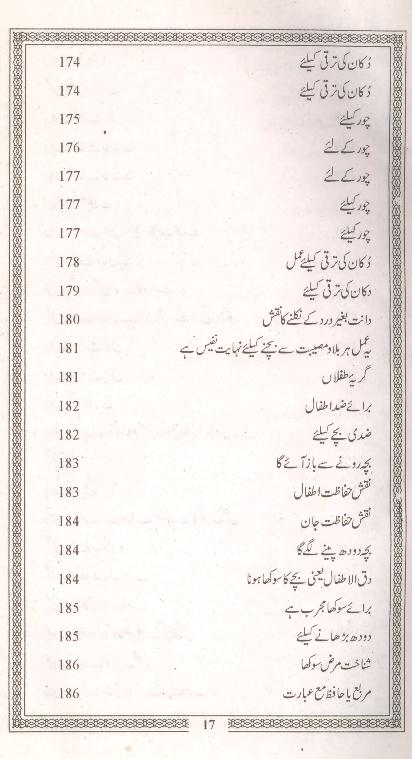 دُکان کی ترقی کیلئے 174
دُکان کی ترقی کیلئے 174
چور کیلئے 175
چور کے لئے 176
چور کے لئے 177
چور کیلئے 177
چور کیلئے 177
دُکان کی ترقی کیلئے عمل 178
دکان کی ترقی کیلئے 179
دانت بغیر درد کے نکلنے کا نقش 180
یہ عمل ہر بلا و مصیبت سے بچنے کیلئے نہایت نفیس ہے 181
گریۂ طفلاں 181
برائے ضد اطفال 182
ضدی بچے کیلئے 182
بچہ رونے سے باز آئے گا 183
نقش حفاظت اطفال 183
نقش حفاظت جان 184
بچہ دودھ پینے لگے گا 184
دق الاطفال یعنی بچے کا سوکھا ہونا 184
برائے سوکھا مجرب ہے 185
دودھ بڑھانے کیلئے 185
شناخت مرض سوکھا 186
مربع یا حافظ مع عبارت 186
17